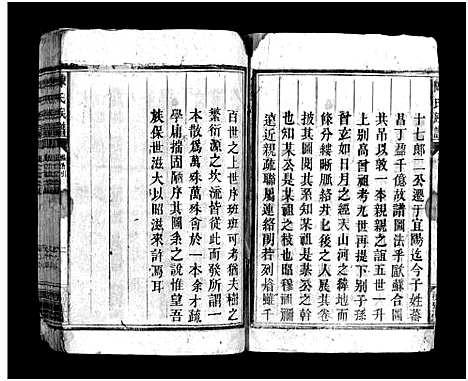 十七郎二公遷于宜陽迄今子姓蕃
昌丁盈千億故譜圖法乎歐蘇合圖
共吊以敦一本親親之誼五世一升
上別高曾祖考九世再提下及子孫
曾玄如日月之經天山河之緯地而
條分縷晰脈絡井然後之人展其卷
按其圖閱其系知某祖某公之幹
也知某祖之枝也即昆穆祖禰
遠近親疏聯屬連絡朗若列焙雖千
百世之上世序班班可考猶夫樹之
繁衍源之坎流皆從此而發所謂一
本散爲萬殊萬殊合於一本余才疏
學庸搢固原序其圖系之說惟望吾
族保世滋大以昭滋來許焉耳
陳氏族譜